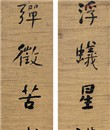 浮蟻星
彈徵苦